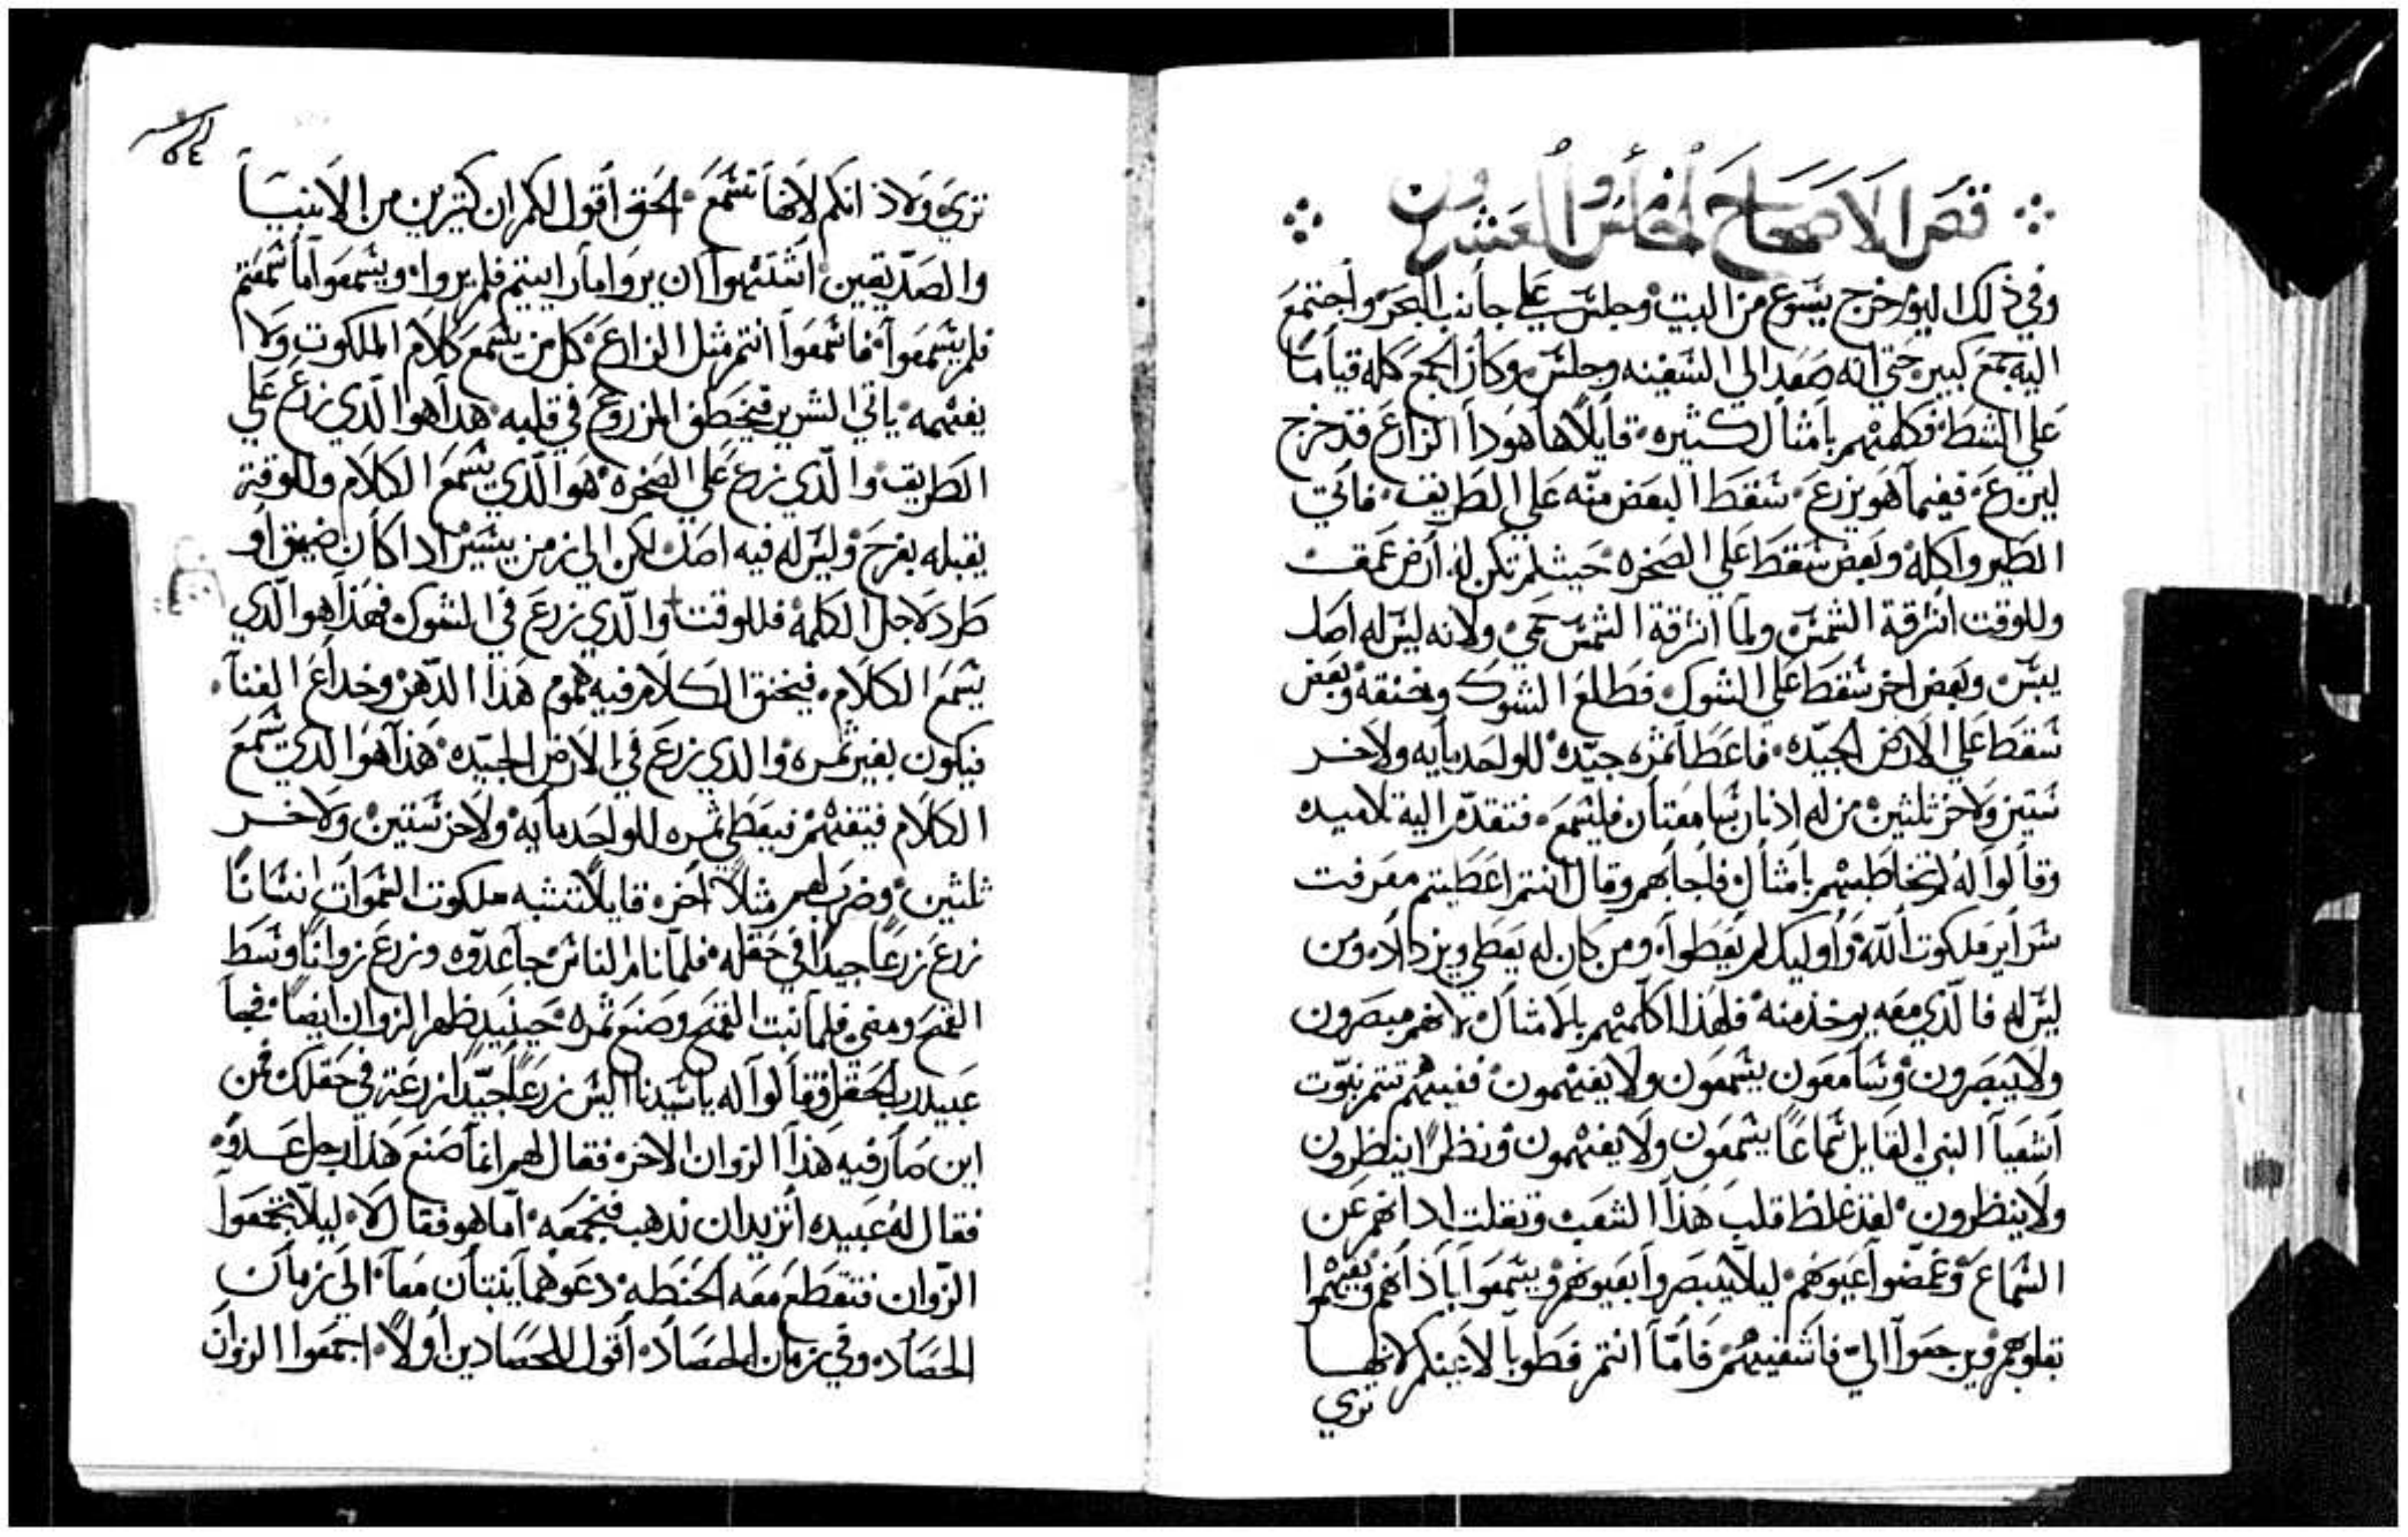 فص الاصحاح الخامس والعشرون
وفي ذلك اليوم خرج يسوع من البيت وجلس علي جانب البحر واجتمع
اليه جمع كبير حتي انه صعد الي السفينه وجلس وكان الجمع كله قياما
علي الشط فكلمهم بامثال كثيره قايلا هاهودا الزارع قد خرج
ليزرع ففيما هو يزرع سقط البعض منه علي الطريف فاتي
الطير واكله وبعض سقط علي الصخره حيث لم تكن له ارض عمقت
وللوقت اشرقة الشمس ولما اشرقة الشمس حمي ولانه ليس له اصل
يبس وبعض اخر سقط علي الشوك فطلع الشوك وخنقه وبعض
سقط علي الارض الجيده فاعطا ثمره جيده للواحد مايه ولاخر
ستين ولاخر ثلثين من له اذنان سامعتان فليسمع فتقدم اليه تلاميده
وقالوا له لم تخاطبهم بامثال فاجابهم وقال انتم اعطيتم معرفت
سراير ملكوت الله واوليك لم يعطوا ومن كان له يعطي ويزداد ومن
ليس له فالذي معه يوخذ منه فلهذا اكلمهم بالامثال لانهم مبصرون
ولا يبصرون وسامعون يسمعون ولا يفهمون ففيهم تتم نبوت
اشعيا النبي القايل سماعا يسمعون ولا يفهمون ونظرا ينظرون
ولا ينظرون لقد غلظ قلب هذا الشعب وثقلت ادانهم عن
السماع وغمضوا عيونهم ليلا يبصروا بعيونهم ويسمعوا باذانهم ويفهموا
بقلوبهم ويرجعوا الي فاشفيهم فاما انتم فطوبا لاعينكم لانها
تري
تري ولاذانكم لانها تسمع الحق اقول لكم ان كثيرين من الانبيا
والصديقين اشتهوا ان يروا ما رايتم فلم يروا ويسمعوا ما سمعتم
فلم يسمعوا فاسمعوا انتم مثل الزارع كل من يسمع كلام الملكوت ولا
يفهمه ياتي الشرير فيخطف المزروع في قلبه هدا هو الذي زرع علي
الطريق والذي زرع علي الصخره هو الذي يسمع الكلام وللوقت
يقبله بفرح وليس له فيه اصل لكن الي زمن يسير ادا كان ضيق او
طرد لاجل الكلمه فللوقت والذي زرع في الشوك فهذا هو الذي
يسمع الكلام فيخنق الكلام فيه هموم هذا الدهر وخداع الغنا
فيكون بغير ثمره والدي زرع في الارض الجيده هذا هو الدي يسمع
الكلام فيتفهم فيعطي ثمره للواحد مايه ولاخر ستين ولاخر
ثلثين وضرب لهم مثلا اخر قايلا تشبه ملكوت السموات انسانا
زرع زرعا جيدا في حقله فلما نام الناس جا عدوه وزرع زوانا وسط
القمح ومضي فلما نبت القمح وصنع ثمره حينيد ظهر الزوان ايضا فجا
عبيد رب الحقل فقالوا له يا سيدنا اليس زرعا جيدا زرعت في حقلك فمن
اين صار فيه هذا الزوان الاخر فقال لهم انما صنع هذا رجل عدو
فقال له عبيده اتريد ان ندهب فنجمعه اما هو فقال لا ليلا تجمعوا
الزوان فتقطع معه الحنطه دعوهما ينبتان معا الي زمان
الحصاد وفي زمان الحصاد اقول للحصادين اولا اجمعوا الزوان